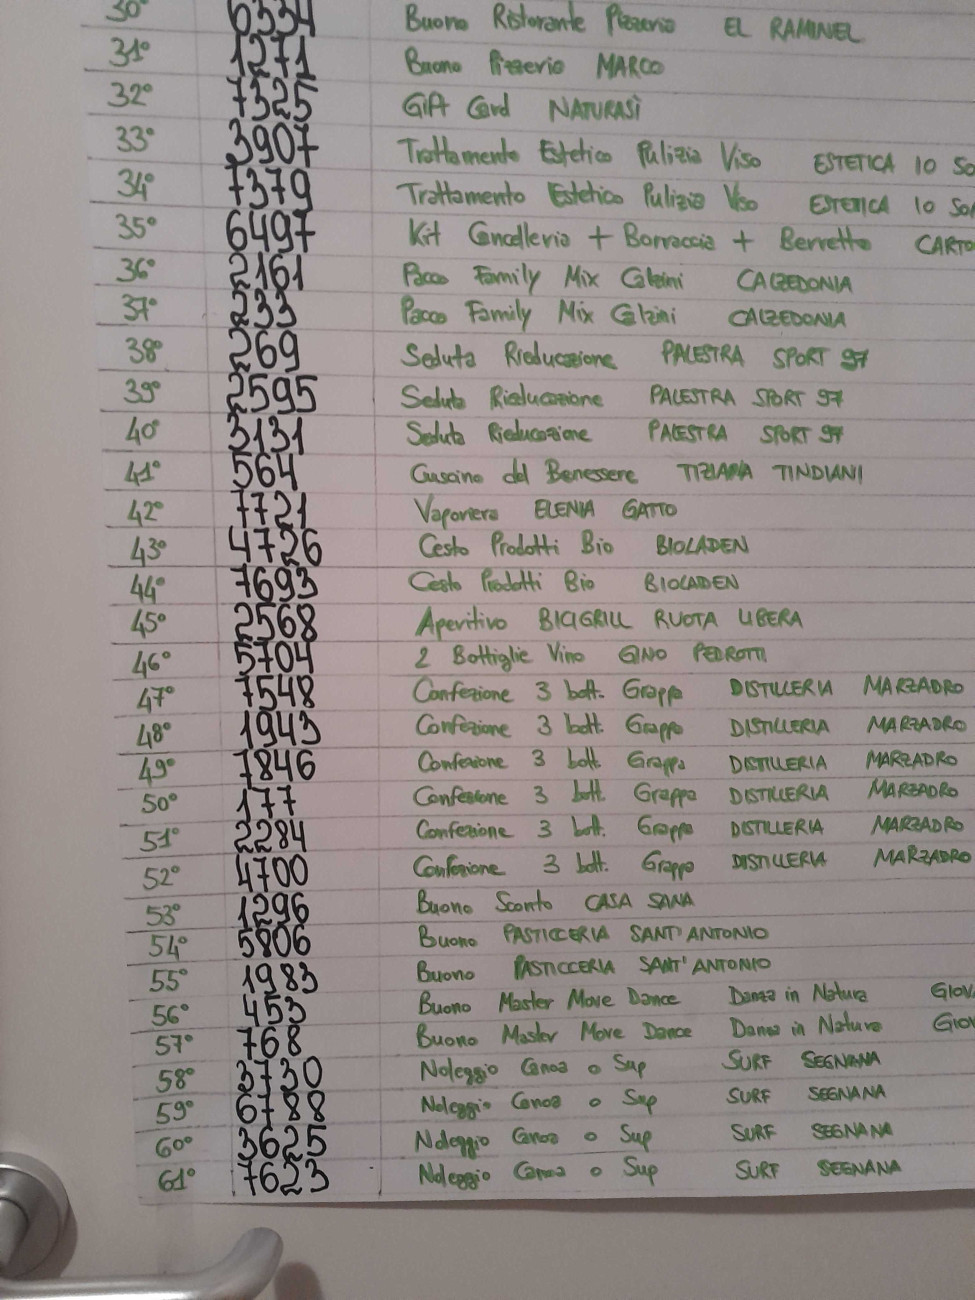 30° 6334 Buono Ristorante Pizzeria EL RAMINEL
31° 1271 Buono Pizzeria MARCO
32° 7325 Gift Card NATURASÌ
33° 3907 Trattamento Estetico Pulizia Viso ESTETICA IO SO
34° 7379 Trattamento Estetico Pulizia Viso ESTETICA IO SO
35° 6497 Kit Cancelleria + Borraccia + Berretto CARTO
36° 2161 Pacco Family Mix Calzini CALZEDONIA
37° 233 Pacco Family Mix Calzini CALZEDONIA
38° 269 Seduta Rieducazione PALESTRA SPORT 97
39° 2595 Seduta Rieducazione PALESTRA SPORT 97
40° 3131 Seduta Rieducazione PALESTRA SPORT 97
41° 564 Cuscino del Benessere TIZIANA TINDIANI
42° 7721 Vaporiera ELENIA GATTO
43° 4726 Cesto Prodotti Bio BIOLADEN
44° 7693 Cesto Prodotti Bio BIOLADEN
45° 2568 Aperitivo BICIGRILL RUOTA LIBERA
46° 5704 2 Bottiglie Vino GINO PEDROTTI
47° 7548 Confezione 3 bott. Grappa DISTILLERIA MARZADRO
48° 1943 Confezione 3 bott. Grappa DISTILLERIA MARZADRO
49° 7846 Confezione 3 bott. Grappa DISTILLERIA MARZADRO
50° 177 Confezione 3 bott. Grappa DISTILLERIA MARZADRO
51° 2284 Confezione 3 bott. Grappa DISTILLERIA MARZADRO
52° 4700 Confezione 3 bott. Grappa DISTILLERIA MARZADRO
53° 1296 Buono Sconto CASA SANA
54° 5806 Buono PASTICCERIA SANT'ANTONIO
55° 1983 Buono PASTICCERIA SANT'ANTONIO
56° 453 Buono Master Move Dance Danza in Natura GIOV
57° 768 Buono Master Move Dance Danza in Natura GIOV
58° 3730 Noleggio Canoa o Sup SURF SEGNANA
59° 6788 Noleggio Canoa o Sup SURF SEGNANA
60° 3625 Noleggio Canoa o Sup SURF SEGNANA
61° 7623 Noleggio Canoa o Sup SURF SEGNANA